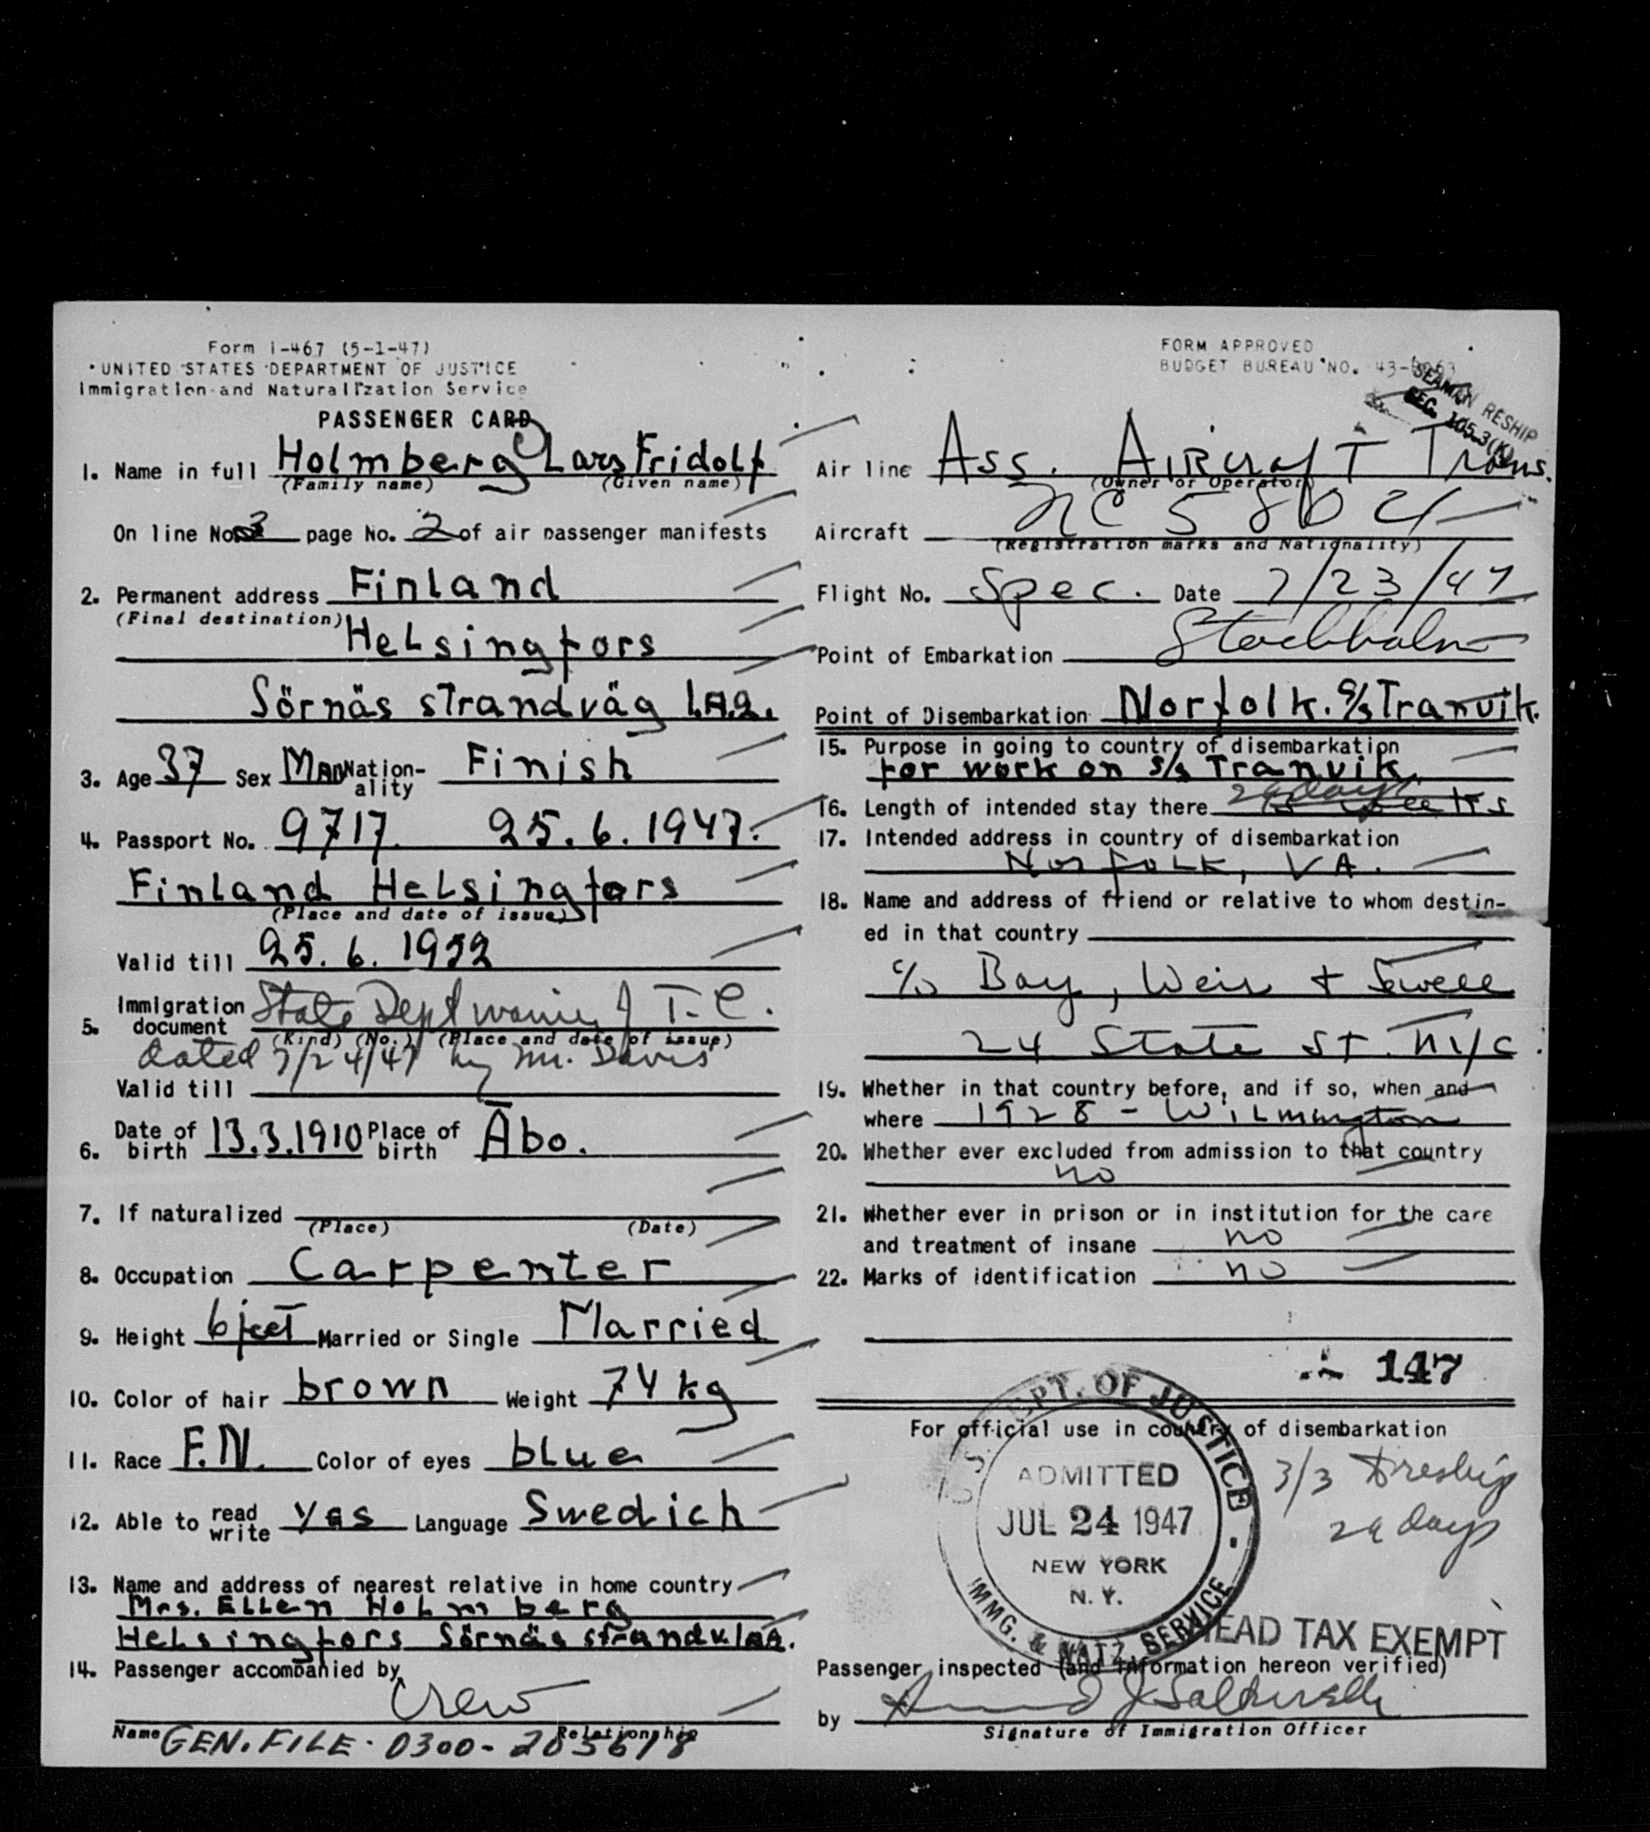 Form I-467 (5-1-47)
UNITED STATES DEPARTMENT OF JUSTICE
Immigration and Naturalization Service
PASSENGER CARD
1. Name in full Holmberg Lars Fridolf
(Family name) (Given name)
On line No. 3 page No. 2 of air passenger manifests
2. Permanent address Finland
(Final destination)
Helsingfors
Sörnäs strandväg 1.A.2.
3. Age 37 Sex Man Nation-ality Finish
4. Passport No. 9717. 25.6.1947.
Finland Helsingfors
(Place and date of issue)
Valid till 25.6.1952
5. Immigration document State Dept T.C.
(Kind) (No.) (Place and date of issue)
dated 7/24/47 by Mr. Davis
Valid till
6. Date of birth 13.3.1910 Place of birth Åbo.
7. If naturalized
(Place) (Date)
8. Occupation Carpenter
9. Height 6 feet Married or Single Married
10. Color of hair brown Weight 74 kg
11. Race F.N. Color of eyes blue
12. Able to read write yes Language Swedich
13. Name and address of nearest relative in home country
Mrs. Ellen Holmberg
Helsingfors Sörnäs strandv. 1A2.
14. Passenger accompanied by
Crew
Name Relationship
GEN. FILE. 0300-203618
FORM APPROVED
BUDGET BUREAU NO. 43-
SEAMAN RESHIP
SEC. 105.3(K)
Air line Ass. Aircraft Trans.
(Owner or Operator)
Aircraft NC 5
(Registration marks and Nationality)
Flight No. Spec. Date 7/23/47
Point of Embarkation Stockholm
Point of Disembarkation Norfolk. S/S Tranvik.
15. Purpose in going to country of disembarkation
for work on s/s Tranvik.
16. Length of intended stay there 29 days
17. Intended address in country of disembarkation
Norfolk, VA.
18. Name and address of friend or relative to whom destin-
ed in that country
c/o Bay, Weir + Sewell
24 State St. NYC.
19. Whether in that country before, and if so, when and
where 1928 - Wilmington
20. Whether ever excluded from admission to that country
no
21. Whether ever in prison or in institution for the care
and treatment of insane no
22. Marks of identification no
147
For official use in country of disembarkation
U.S. DEPT. OF JUSTICE
ADMITTED
JUL 24 1947
NEW YORK
N.Y.
IMMG. & NATZ. SERVICE
3/3 reship
29 days
HEAD TAX EXEMPT
Passenger inspected (and information hereon verified)
by
Signature of Immigration Officer